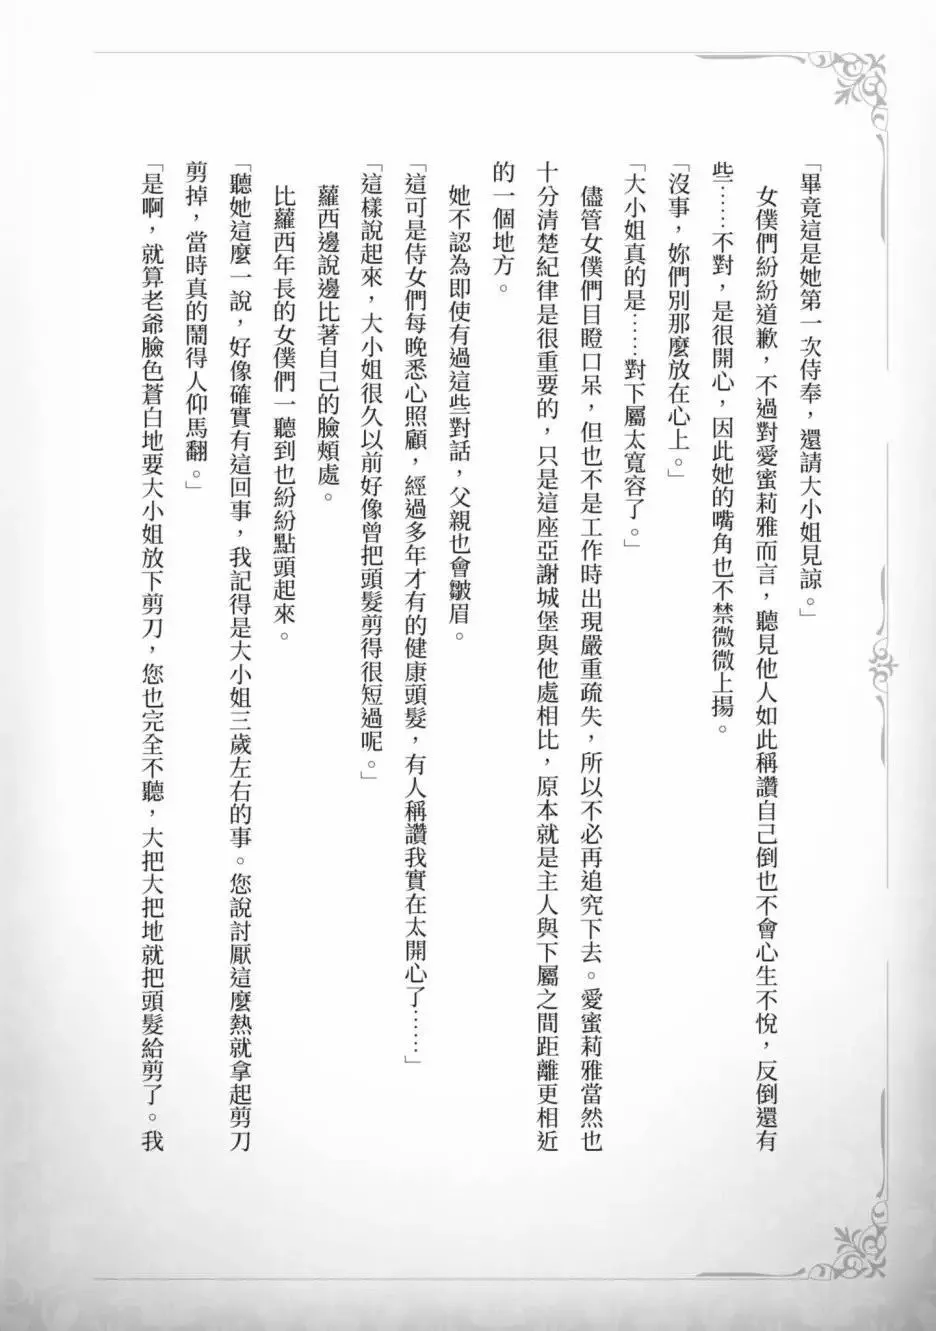 「畢竟這是她第一次侍奉，還請大小姐見諒。」
女僕們紛紛道歉，不過對愛蜜莉雅而言，聽見他人如此稱讚自己倒也不會心生不悅，反倒還有
些……不對，是很開心，因此她的嘴角也不禁微微上揚。
「沒事，妳們別那麼放在心上。」
「大小姐真的是……對下屬太寬容了。」
儘管女僕們目瞪口呆，但也不是工作時出現嚴重疏失，所以不必再追究下去。愛蜜莉雅當然也
十分清楚紀律是很重要的，只是這座亞謝城堡與他處相比，原本就是主人與下屬之間距離更相近
的一個地方。
她不認為即使有過這些對話，父親也會皺眉。
「這可是侍女們每晚悉心照顧，經過多年才有的健康頭髮，有人稱讚我實在太開心了……」
「這樣說起來，大小姐很久以前好像曾把頭髮剪得很短過呢。」
蘿西邊說邊比著自己的臉頰處。
比蘿西年長的女僕們一聽到也紛紛點頭起來。
「聽她這麼一說，好像確實有這回事，我記得是大小姐三歲左右的事。您說討厭這麼熱就拿起剪刀
剪掉，當時真的鬧得人仰馬翻。」
「是啊，就算老爺臉色蒼白地要大小姐放下剪刀，您也完全不聽，大把大把地就把頭髮給剪了。我